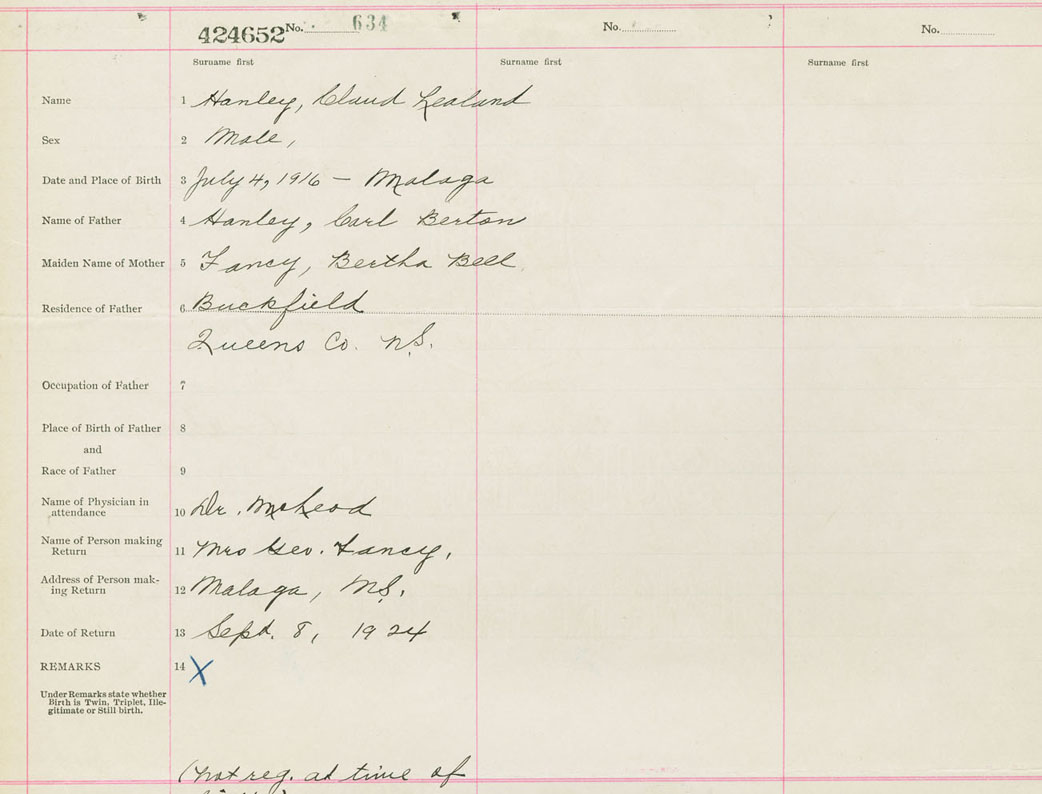 424652 No. 634 No. No.
Surname first Surname first Surname first
Name 1 Hanley, Claud Lealand
Sex 2 Male,
Date and Place of Birth 3 July 4, 1916 – Malaga
Name of Father 4 Hanley, Carl Berton
Maiden Name of Mother 5 Fancy, Bertha Bell
Residence of Father 6 Buckfield
Queens Co. N.S.
Occupation of Father 7
Place of Birth of Father 8
and
Race of Father 9
Name of Physician in
attendance 10 Dr. McLeod
Name of Person making
Return 11 Mrs Geo. Fancy,
Address of Person mak-
ing Return 12 Malaga, N.S.
Date of Return 13 Sept. 8, 1924
REMARKS 14 X
Under Remarks state whether
Birth is Twin, Triplet, Ille-
gitimate or Still birth.
(not reg. at time of